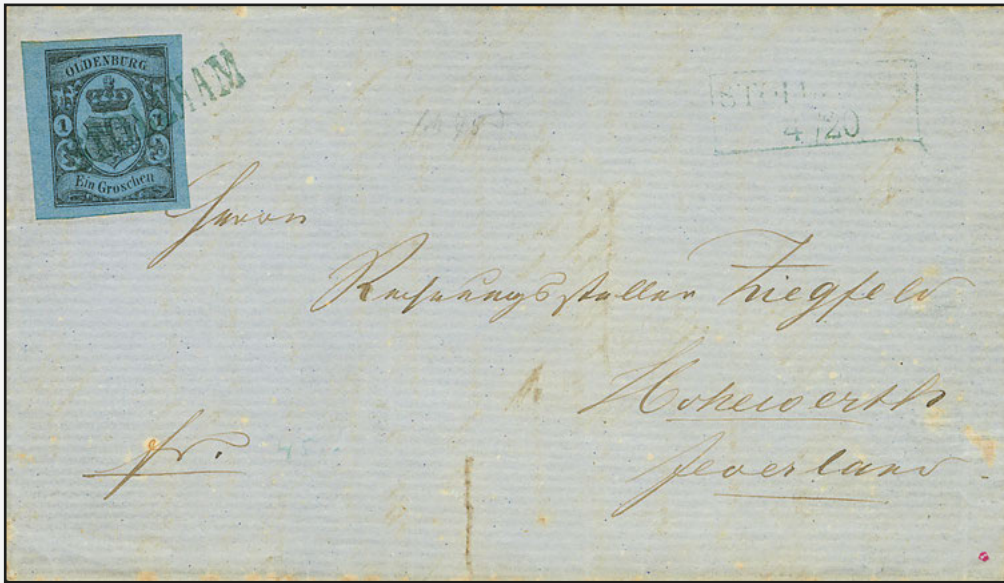 OLDENBURG
1 1
Ein Groschen
HAM
4 /20
Herrn
Rechnungssteller Ziegfeld
Hohewerth
Jeverland
fr.